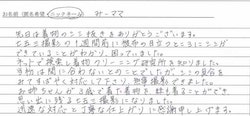 お名前（匿名希望・ニックネーム） みーママ
先日は着物のシミ抜きをありがとうございます。
七五三撮影の1週間前に襦袢の目立つところにシミができていることがわかり、困っていました。
ネットで検索し着物クリーニング研究所を知りました。
当初は間に合わないとのことでしたが、シミの具合を
みてすばやく対応して下さり、無事撮影できました。
お姉ちゃんが3歳で着た着物を妹も着ることができ
思い出に残る七五三撮影になりました。
迅速な対応と丁寧な仕上がりに感謝申し上げます。